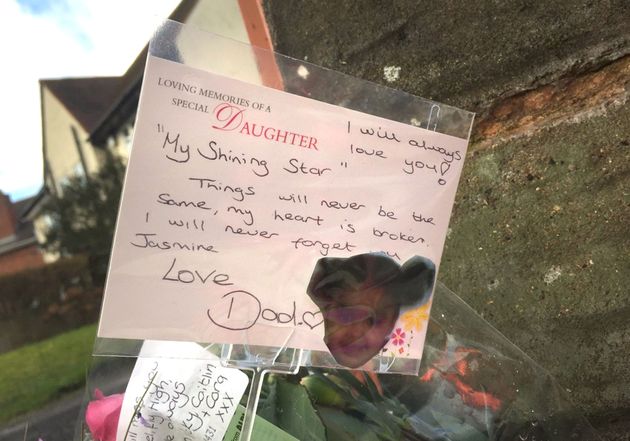 LOVING MEMORIES OF A
SPECIAL DAUGHTER
I will always
love you!
"My Shining Star"
Things will never be the
same, my heart is broken.
I will never forget
Jasmine
Love
Dad.
you
High,
always
Caitlin
xxx